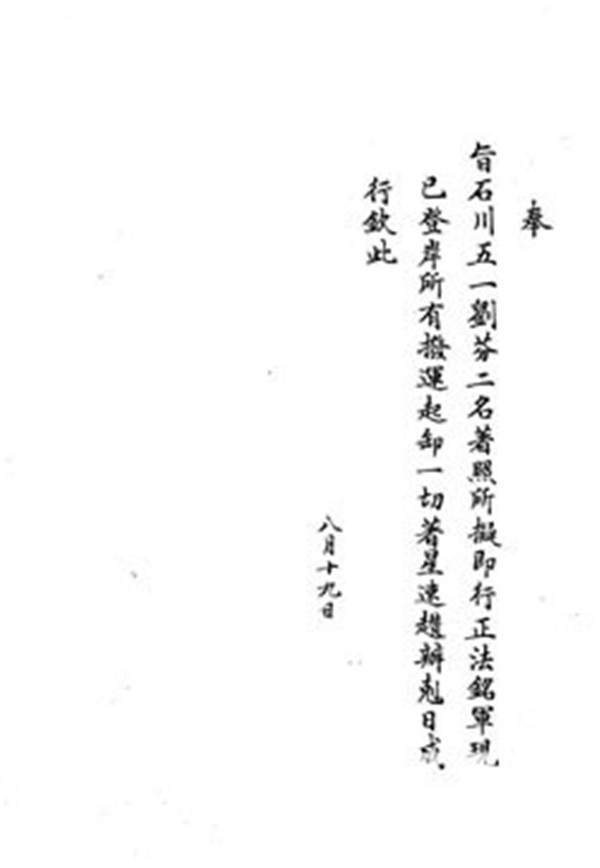 奉
旨石川五一劉芬二名著照所擬即行正法銘軍現
已登岸所有撥運起卸一切著星速趲辦剋日成
行欽此
八月十九日